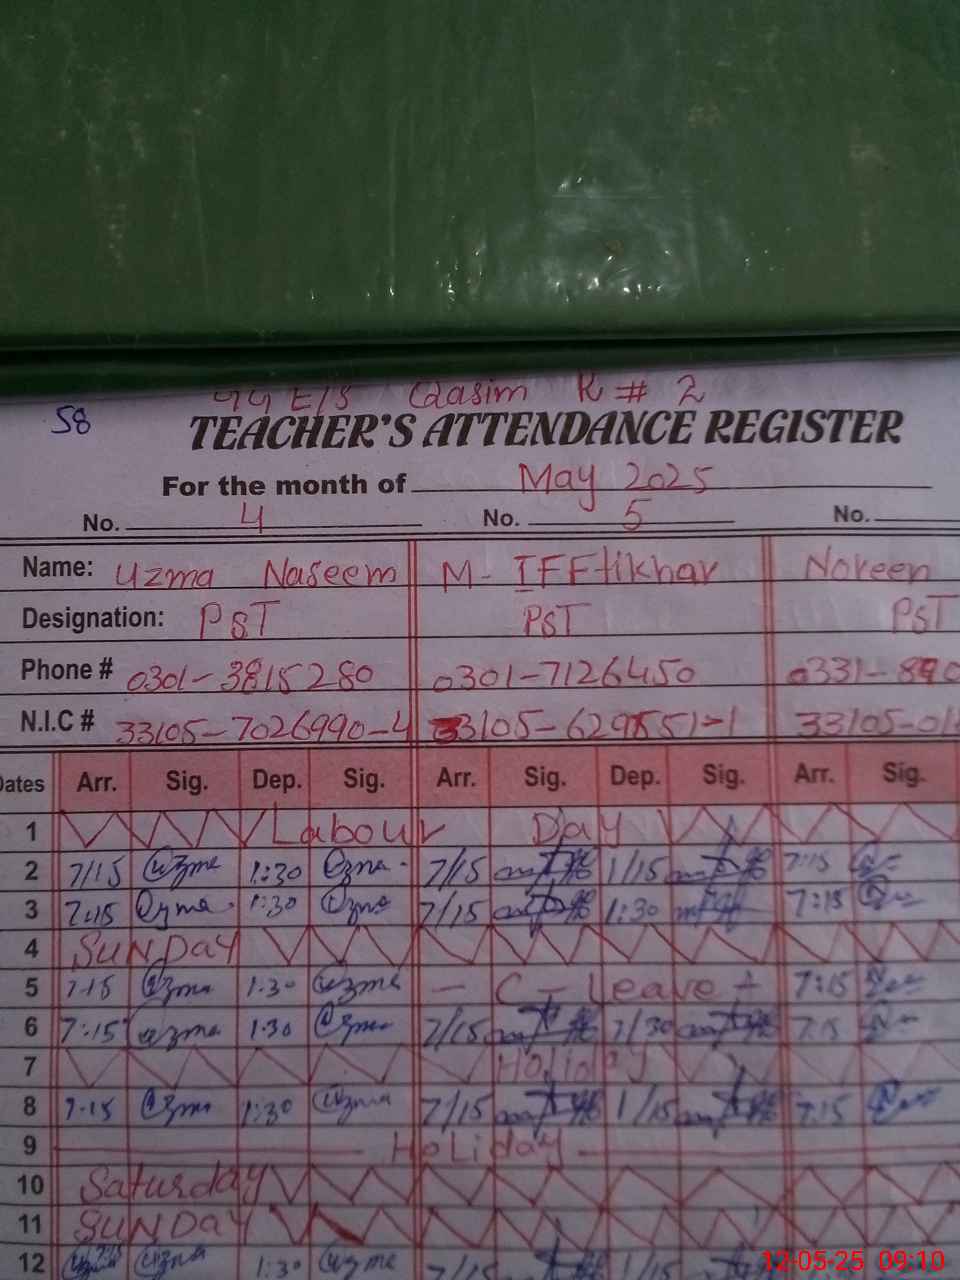 GGE/S Qasim K # 2
58
TEACHER'S ATTENDANCE REGISTER
For the month of May 2025
No. 4 No. 5 No.
Name: Uzma Naseem M- IFFtikhar Noreen
Designation: PST PST PST
Phone # 0301-3815280 0301-7126450 0331-8
N.I.C # 33105-7026990-4 33105-629 551-1 33105-01
Dates Arr. Sig. Dep. Sig. Arr. Sig. Dep. Sig. Arr. Sig.
1 Labour Day
2 7/15 Uzma 1:30 Uzma 7/15 1/15 7:15
3 7:15 Uzma 1:30 Uzma 7/15 1:30 7:15
4 SUNDAY
5 7-15 Uzma 1.30 Uzma - C - Leave - 7:15
6 7:15 Uzma 1.30 Uzma 7/15 7/30 7:15
7 Holiday
8 7-15 Uzma 1:30 Uzma 7/15 1/15 7:15
9 Holiday
10 Saturday
11 SUNDAY
12 Uzma 1:30 Uzma 7/15 1/15
12-05-25 09:10